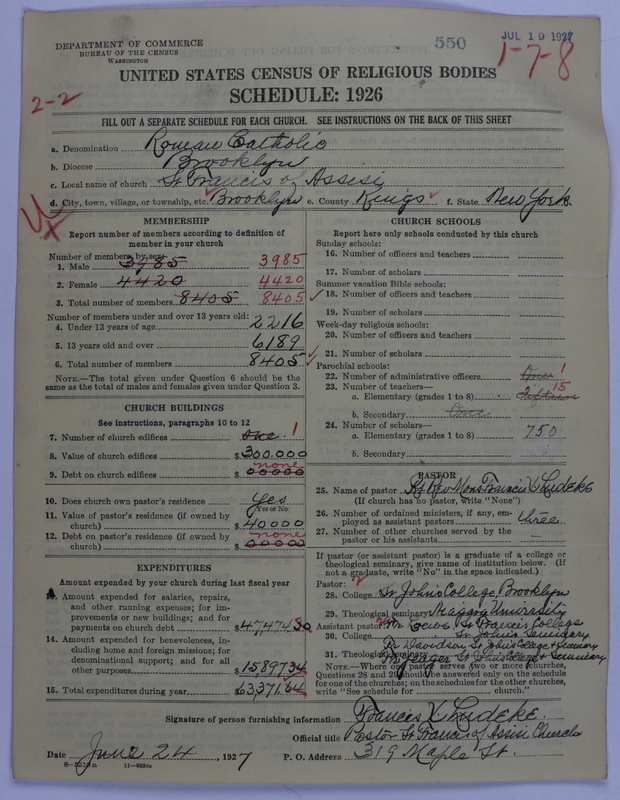 DEPARTMENT OF COMMERCE
BUREAU OF THE CENSUS
WASHINGTON
550
JUL 19 1927
1-7-8
2-2
UNITED STATES CENSUS OF RELIGIOUS BODIES
SCHEDULE: 1926
FILL OUT A SEPARATE SCHEDULE FOR EACH CHURCH. SEE INSTRUCTIONS ON THE BACK OF THIS SHEET
a. Denomination Roman Catholic
b. Diocese Brooklyn
c. Local name of church St Francis of Assisi
d. City, town, village, or township, etc. Brooklyn e. County Kings f. State New York.
MEMBERSHIP
Report number of members according to definition of member in your church
Number of members by sex:
1. Male 3985 3985
2. Female 4420 4420
3. Total number of members 8405 8405
Number of members under and over 13 years old:
4. Under 13 years of age 2216
5. 13 years old and over 6189
6. Total number of members 8405
NOTE.—The total given under Question 6 should be the
same as the total of males and females given under Question 3.
CHURCH BUILDINGS
See instructions, paragraphs 10 to 12
7. Number of church edifices one. 1
8. Value of church edifices $300.000
9. Debt on church edifices $00000 none
10. Does church own pastor's residence Yes
Yes or No
11. Value of pastor's residence (if owned by
church) $40000
12. Debt on pastor's residence (if owned by
church) $00000 none
EXPENDITURES
Amount expended by your church during last fiscal year
13. Amount expended for salaries, repairs,
and other running expenses; for im-
provements or new buildings; and for
payments on church debt $47,474.30
14. Amount expended for benevolences, in-
cluding home and foreign missions; for
denominational support; and for all
other purposes $15,897.34
15. Total expenditures during year $63,371.64
CHURCH SCHOOLS
Report here only schools conducted by this church
Sunday schools:
16. Number of officers and teachers
17. Number of scholars
Summer vacation Bible schools:
18. Number of officers and teachers
19. Number of scholars
Week-day religious schools:
20. Number of officers and teachers
21. Number of scholars
Parochial schools:
22. Number of administrative officers One 1
23. Number of teachers—
a. Elementary (grades 1 to 8) fifteen 15
b. Secondary One
24. Number of scholars—
a. Elementary (grades 1 to 8) 750
b. Secondary
PASTOR
25. Name of pastor Rt Rev Mons Francis X Ludeke
(If church has no pastor, write "None")
26. Number of ordained ministers, if any, em-
ployed as assistant pastors three
27. Number of other churches served by the
pastor or his assistants —
If pastor (or assistant pastor) is a graduate of a college or
theological seminary, give name of institution below. (If
not a graduate, write "No" in the space indicated.)
Pastor: 2
28. College St John's College, Brooklyn
29. Theological seminary Niagara University
Assistant pastor: St Francis College
30. College St John's Seminary
Fr Davidson St John's College & Seminary
31. Theological seminary St John's College & Seminary
NOTE.—Where one pastor serves two or more churches,
Questions 28 and 29 should be answered only on the schedule
for one of the churches; on the schedules for the other churches,
write "See schedule for church."
Signature of person furnishing information Francis X Ludeke.
Official title Pastor St Francis of Assisi Church
Date June 24, 1927 P. O. Address 319 Maple St.
11—9554a